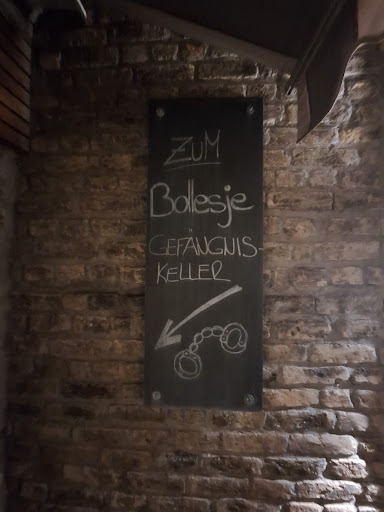 ZUM
Bollesje
GEFÄNGNIS-
KELLER